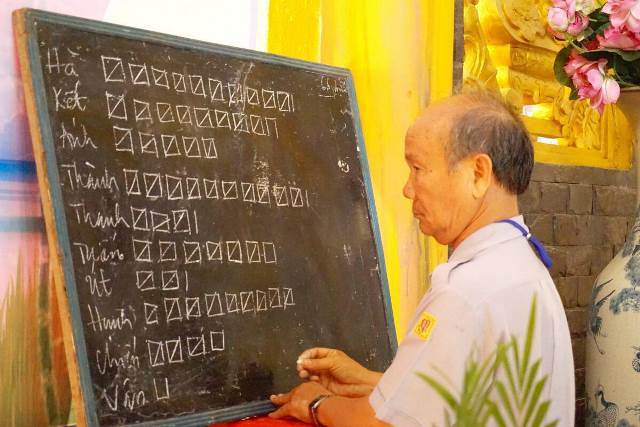 Hà
Kết
Ánh
Thành
Thanh
Tuấn
Út
Hạnh
Chiến
Vân